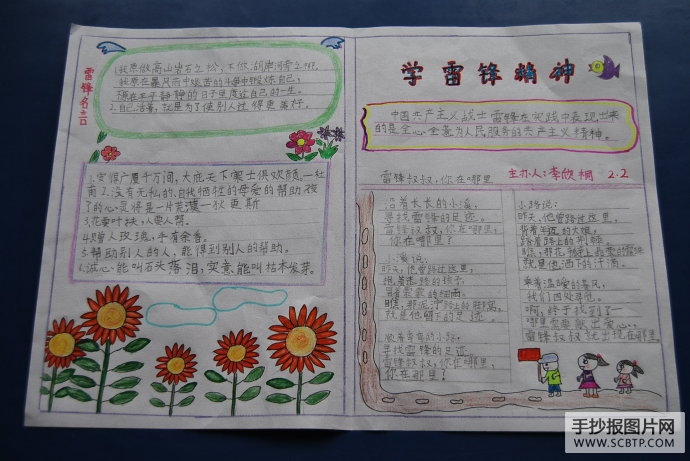 雷锋名言
1.我愿做高山岩石之松,不做湖岸河旁之柳。
我愿在暴风雨中艰苦的斗争中锻炼自己,
不愿在平平静静的日子里度过自己的一生。
2.自己活着,就是为了使别人过得更美好。
1.安得广厦千万间,大庇天下寒士俱欢颜。—杜
甫 2.没有无私的、自我牺牲的母爱的帮助,孩
了的心灵将是一片荒漠—狄更斯
3.花要叶扶,人要人帮。
4.赠人玫瑰,手有余香。
5.帮助别人的人,能得到别人的帮助。
6.诚心能叫石头落泪,实意能叫枯木发芽。
学雷锋精神
中国共产主义战士雷锋在实践中表现出来
的是全心全意为人民服务的共产主义精神。
主办人:李欣桐 2.2
雷锋叔叔,你在哪里
沿着长长的小溪,
寻找雷锋的足迹。
雷锋叔叔,你在哪里,
你在哪里?
小溪说:
昨天,他曾路过这里,
抱着迷路的孩子,
冒着蒙蒙的细雨。
瞧,那泥泞路上的脚窝,
就是他留下的足迹。
顺着弯弯的小路,
寻找雷锋的足迹。
雷锋叔叔,你在哪里,
你在哪里?
小路说:
昨天,他曾路过这里,
背着年迈的大娘,
踏着路上的荆棘。
瞧,那花瓣上晶莹的露珠,
就是他洒下的汗滴。
乘着温暖的春风,
我们四处寻觅。
啊,终于找到了—
哪里需要献出爱心,
雷锋叔叔就出现在哪里
手抄报图片网
WWW.SCBTP.COM